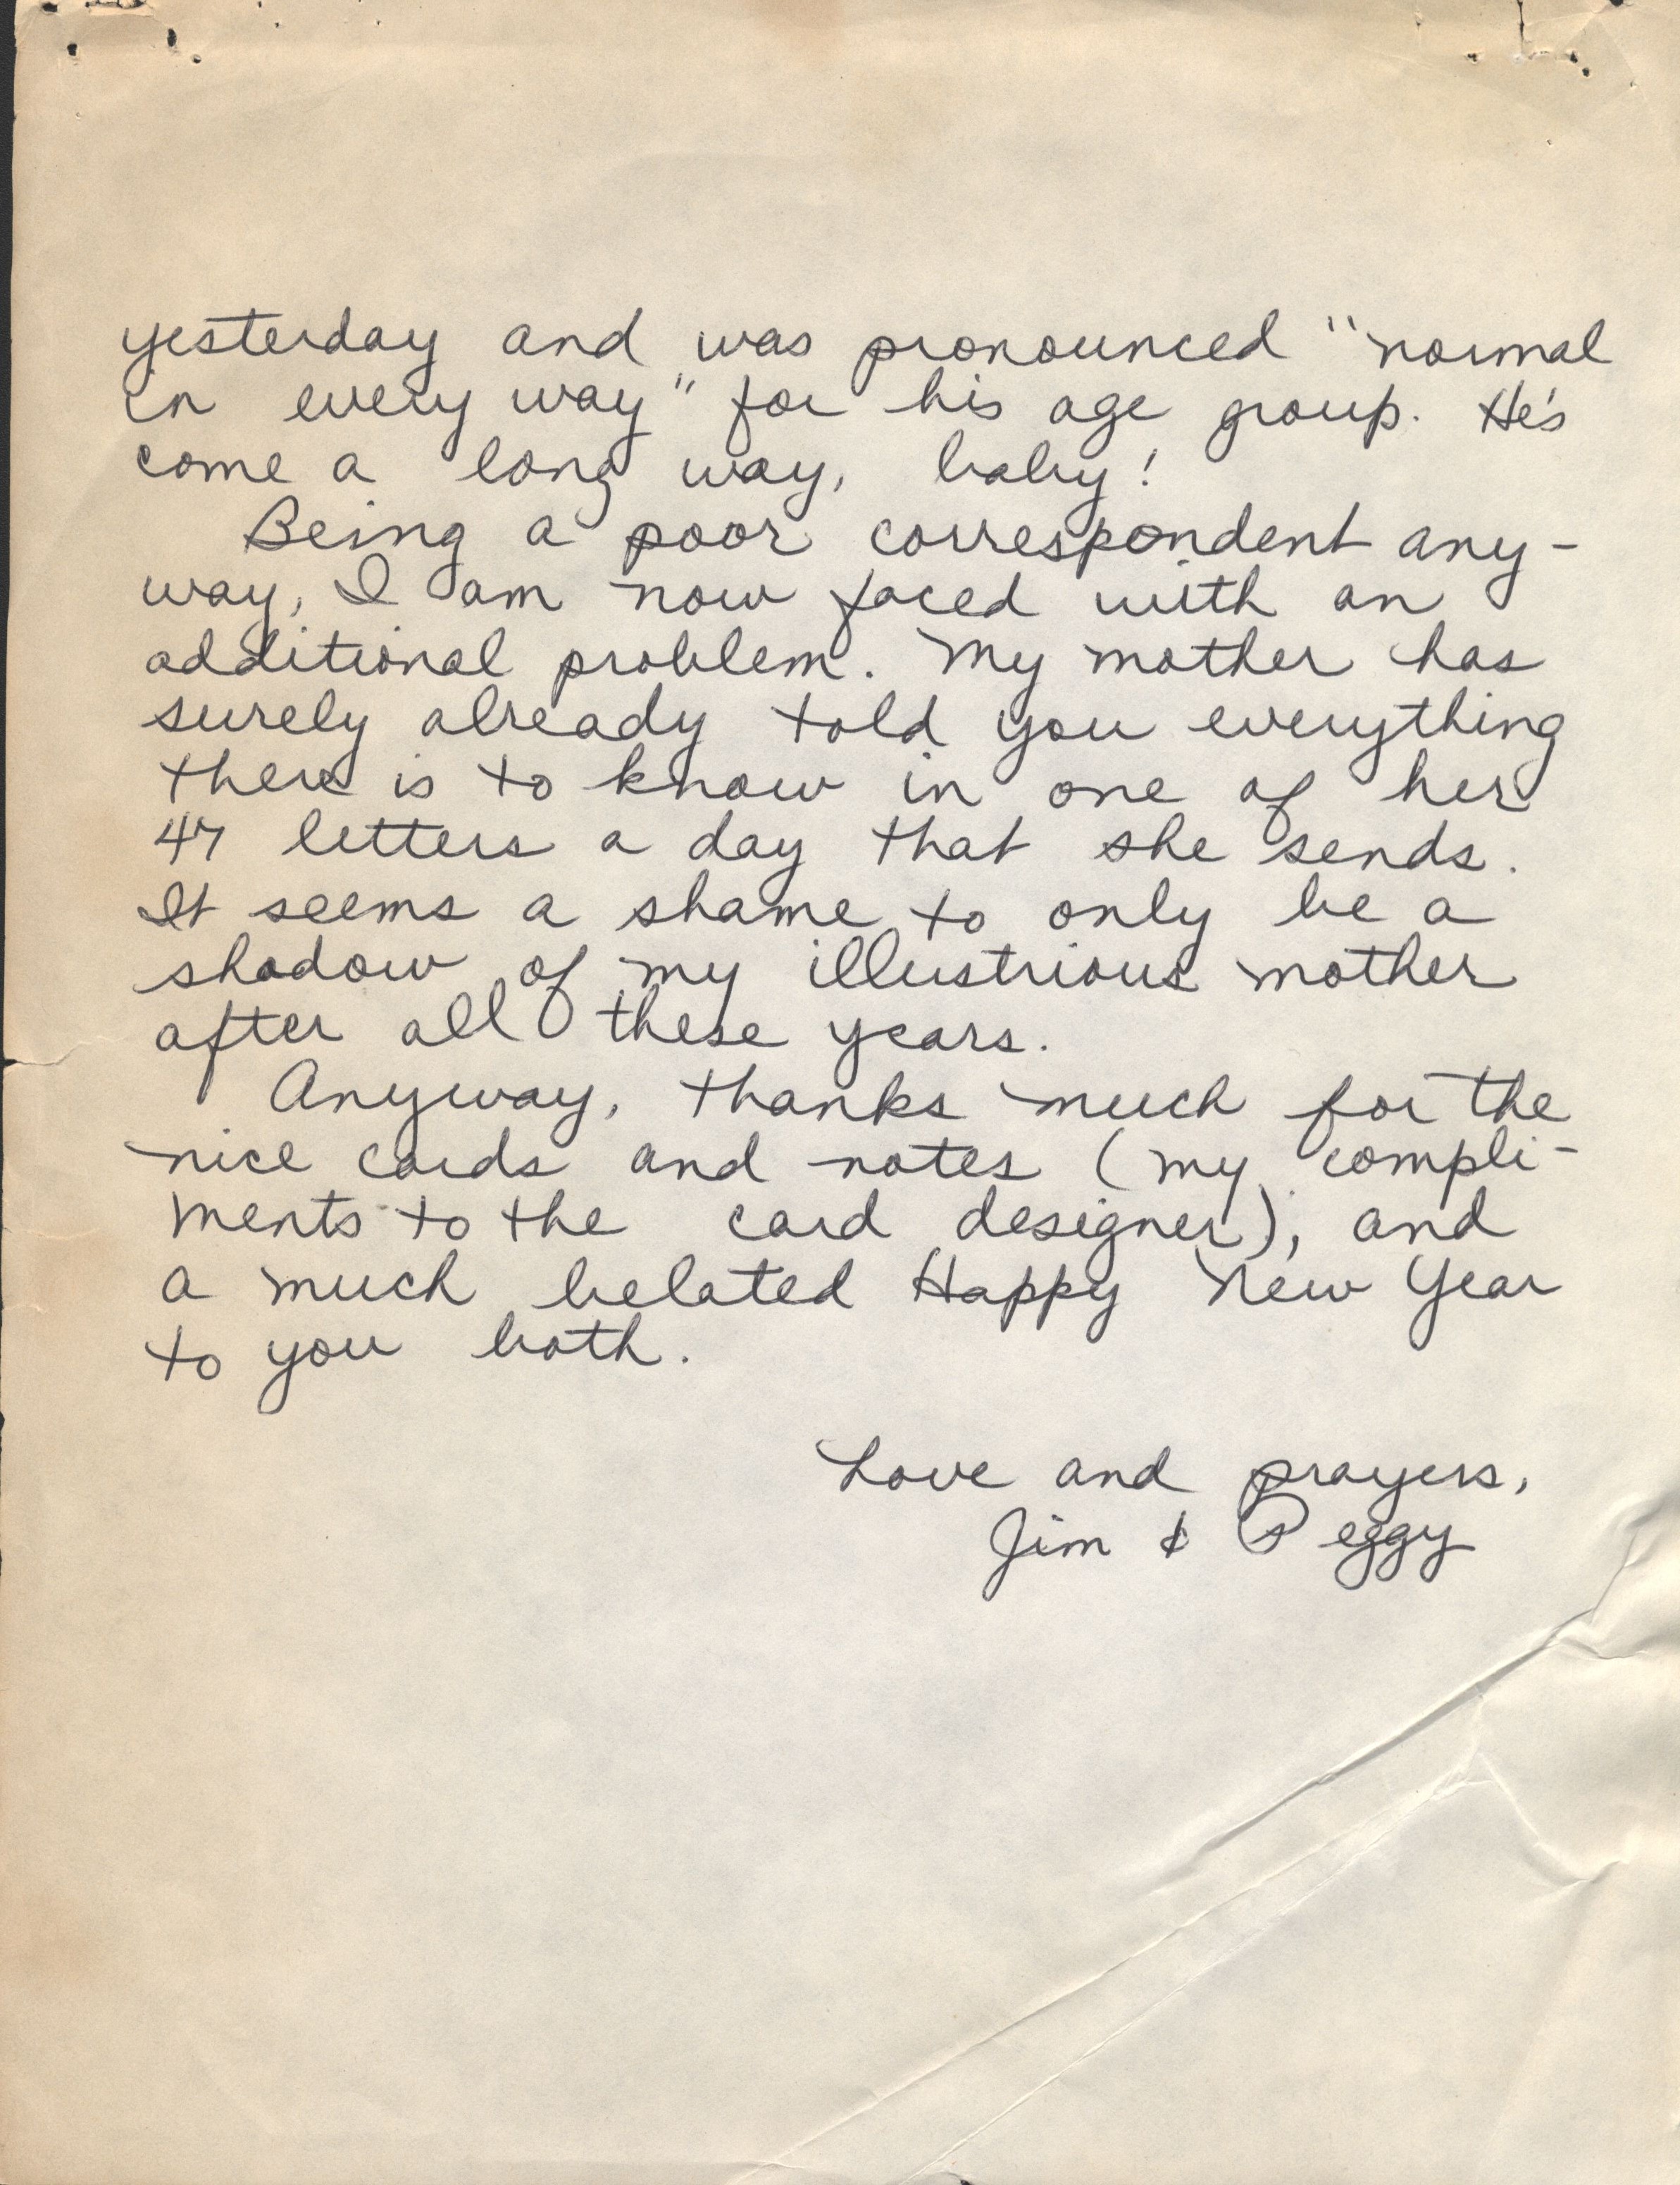 yesterday and was pronounced "normal
in every way" for his age group. He's
come a long way, baby!
Being a poor correspondent any-
way, I am now faced with an
additional problem. My mother has
surely already told you everything
there is to know in one of her
47 letters a day that she sends.
It seems a shame to only be a
shadow of my illustrious mother
after all these years.
Anyway, thanks much for the
nice cards and notes (my compli-
ments to the card designer), and
a much belated Happy New Year
to you both.
Love and prayers,
Jim & Peggy